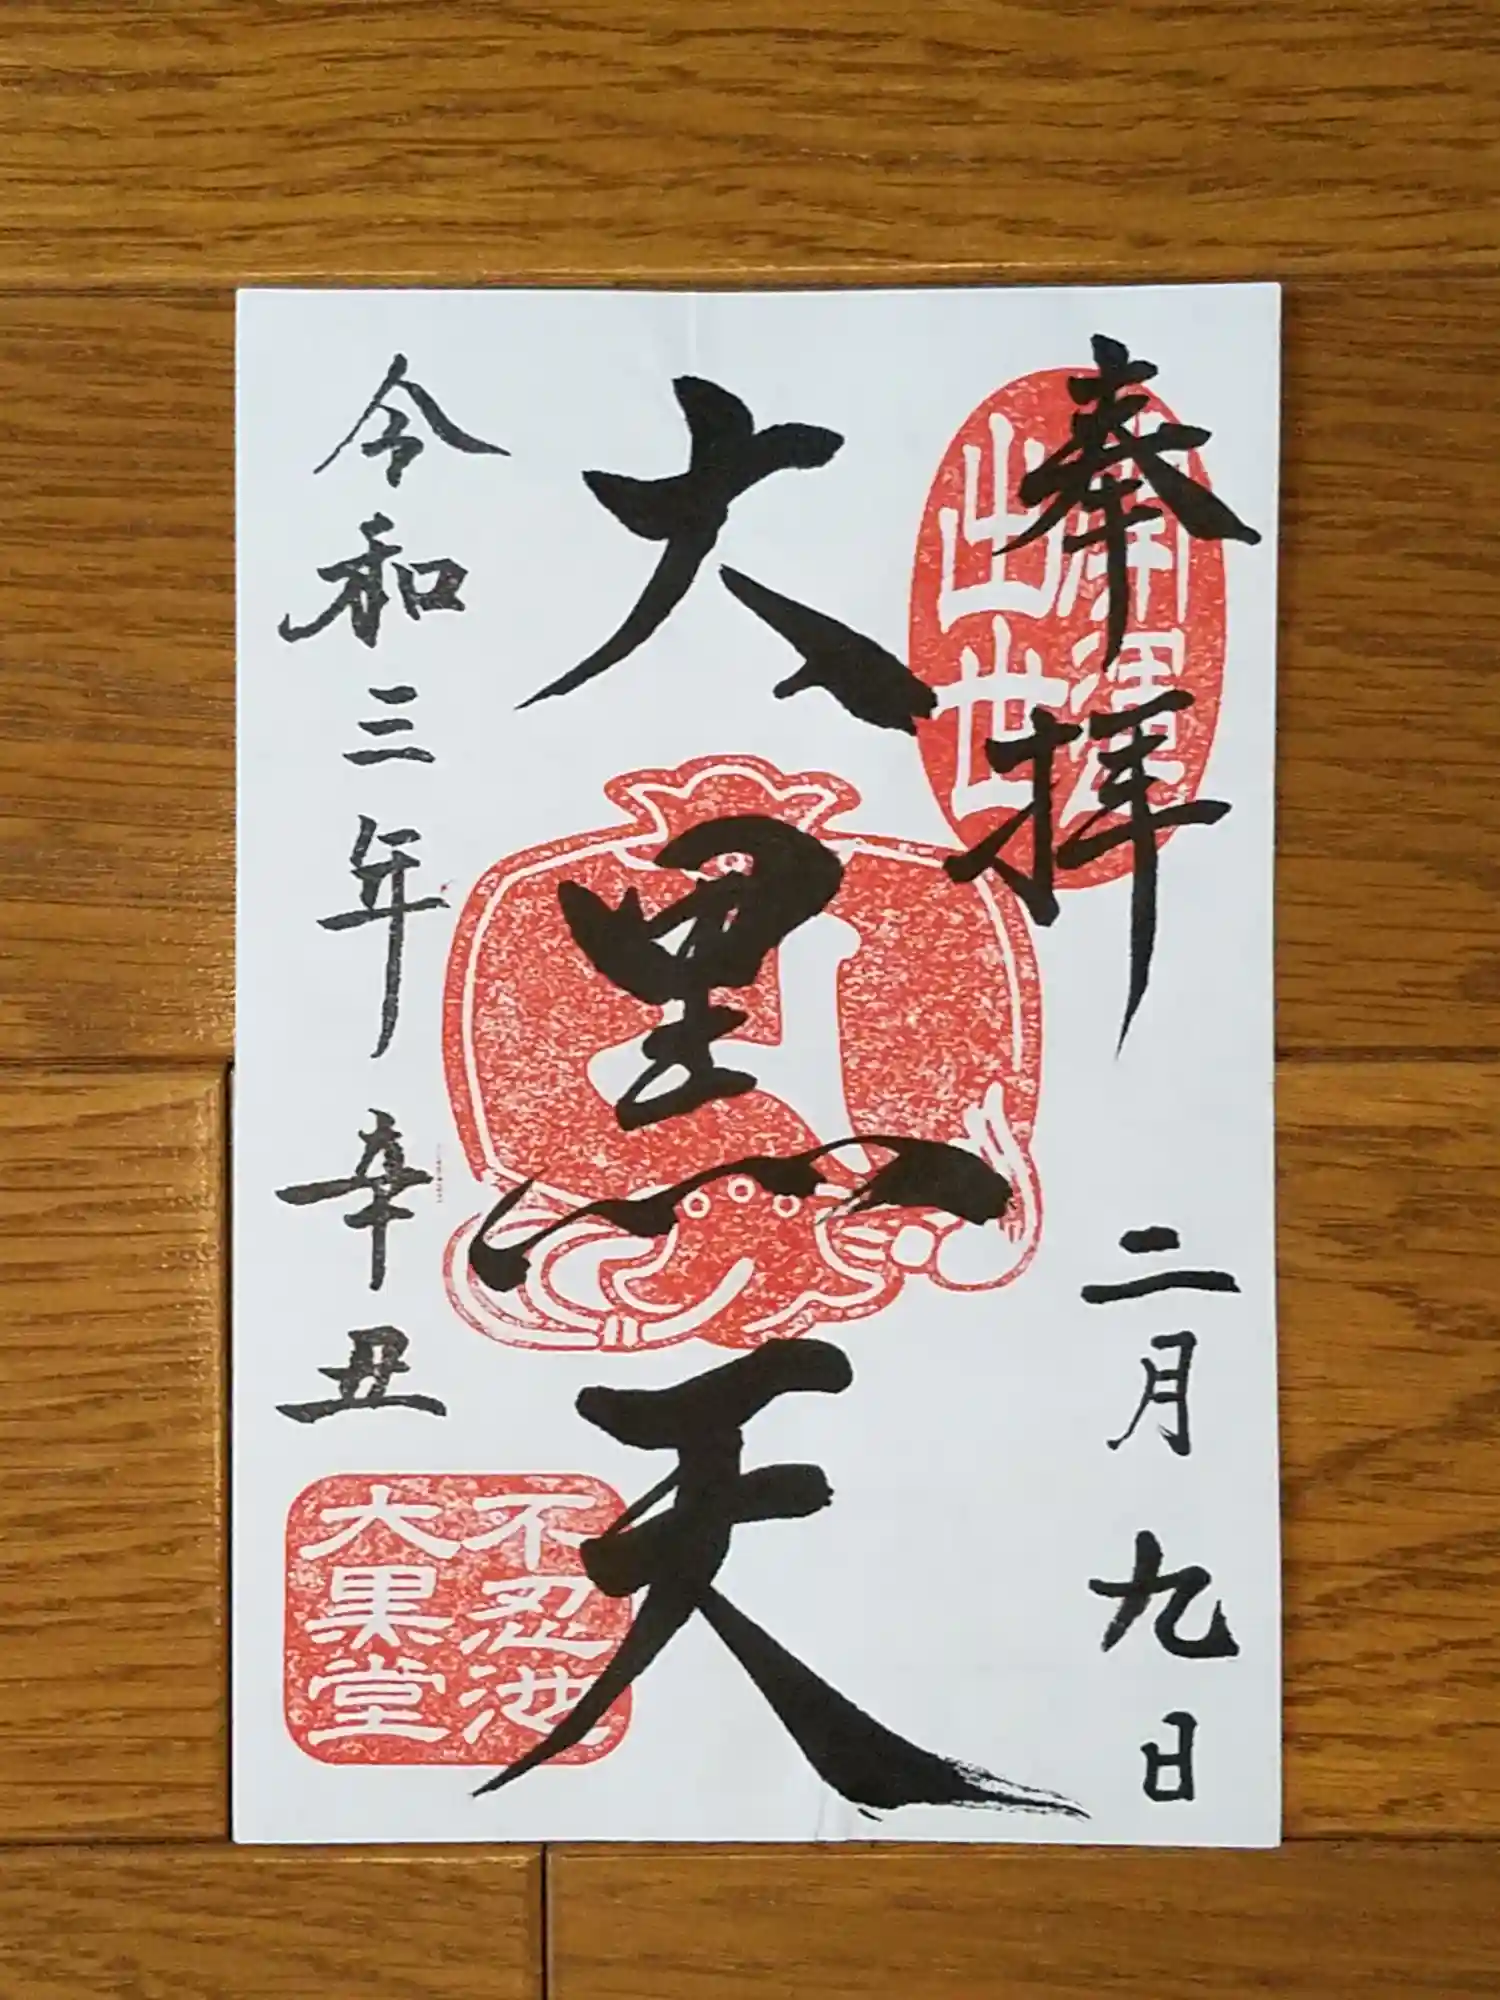 奉拝
二月九日
出世
大黒天
令和三年辛丑
不忍池
大黒堂